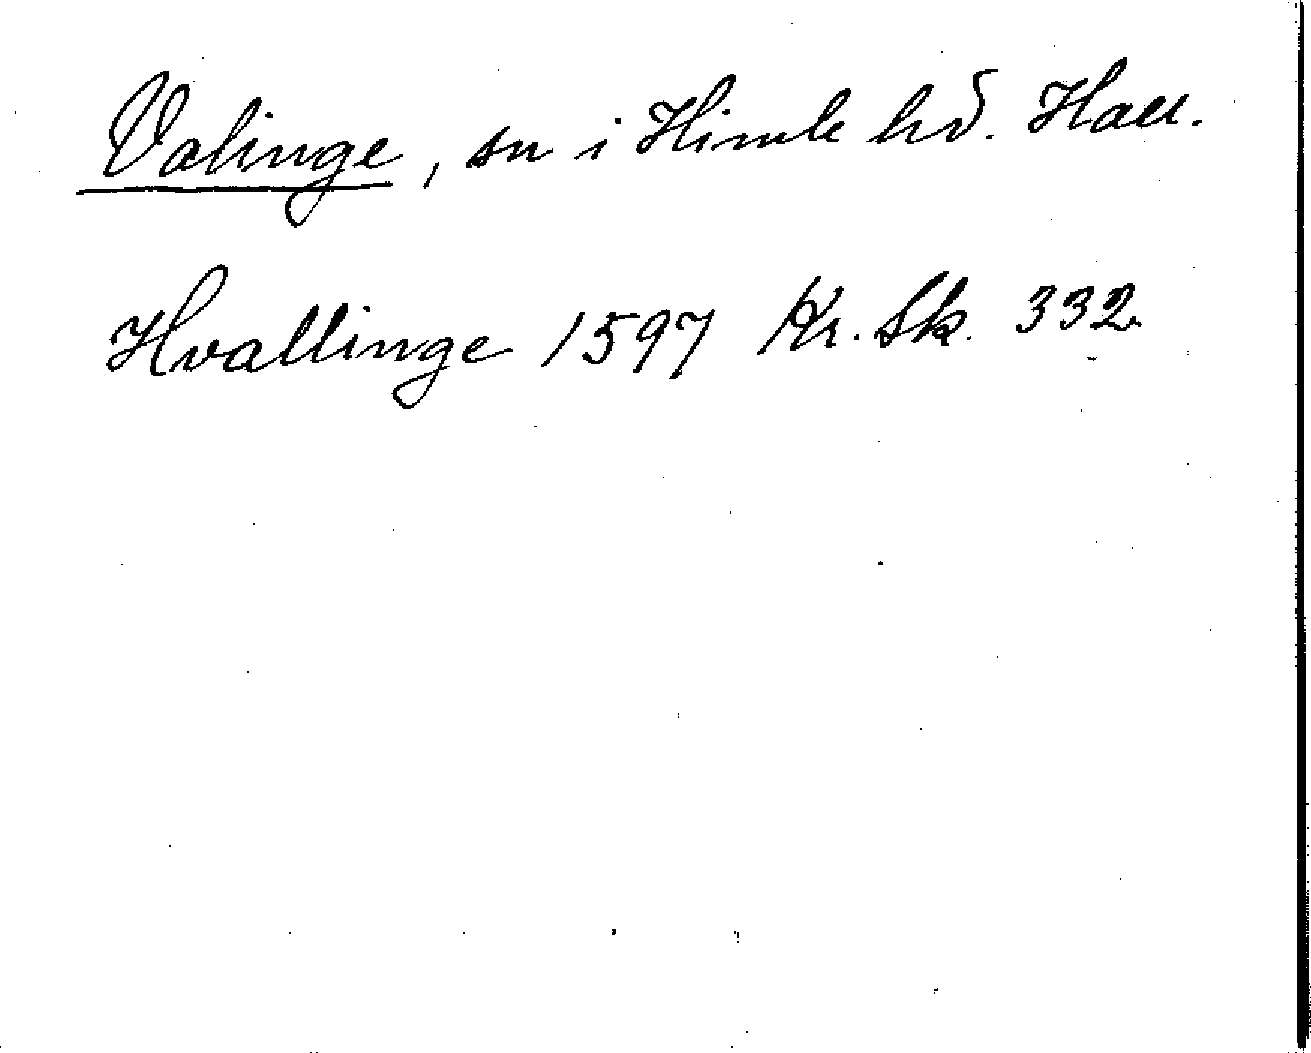 Valinge, sn i Himle hd. Hall.
Hvallinge 1597 Kr. Sk. 332.